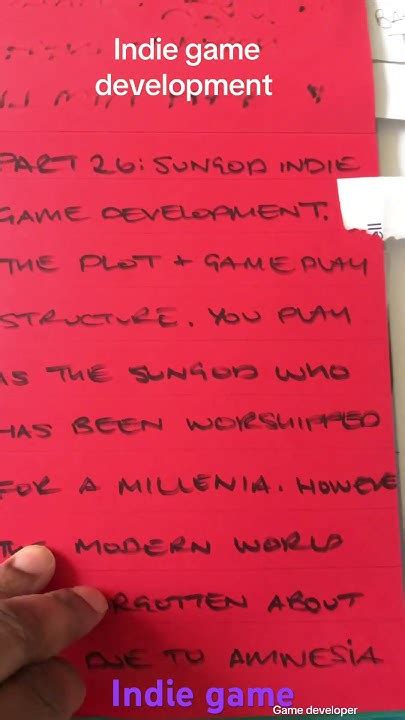 Indie game
development
PART 26: SUNGOD INDIE
GAME DEVELOPMENT.
THE PLOT + GAMEPLAY
STRUCTURE. YOU PLAY
AS THE SUNGOD WHO
HAS BEEN WORSHIPPED
FOR A MILLENIA. HOWEVE
THE MODERN WORLD
RGOTTEN ABOUT
DUE TO AMNESIA
Indie game
Game developer